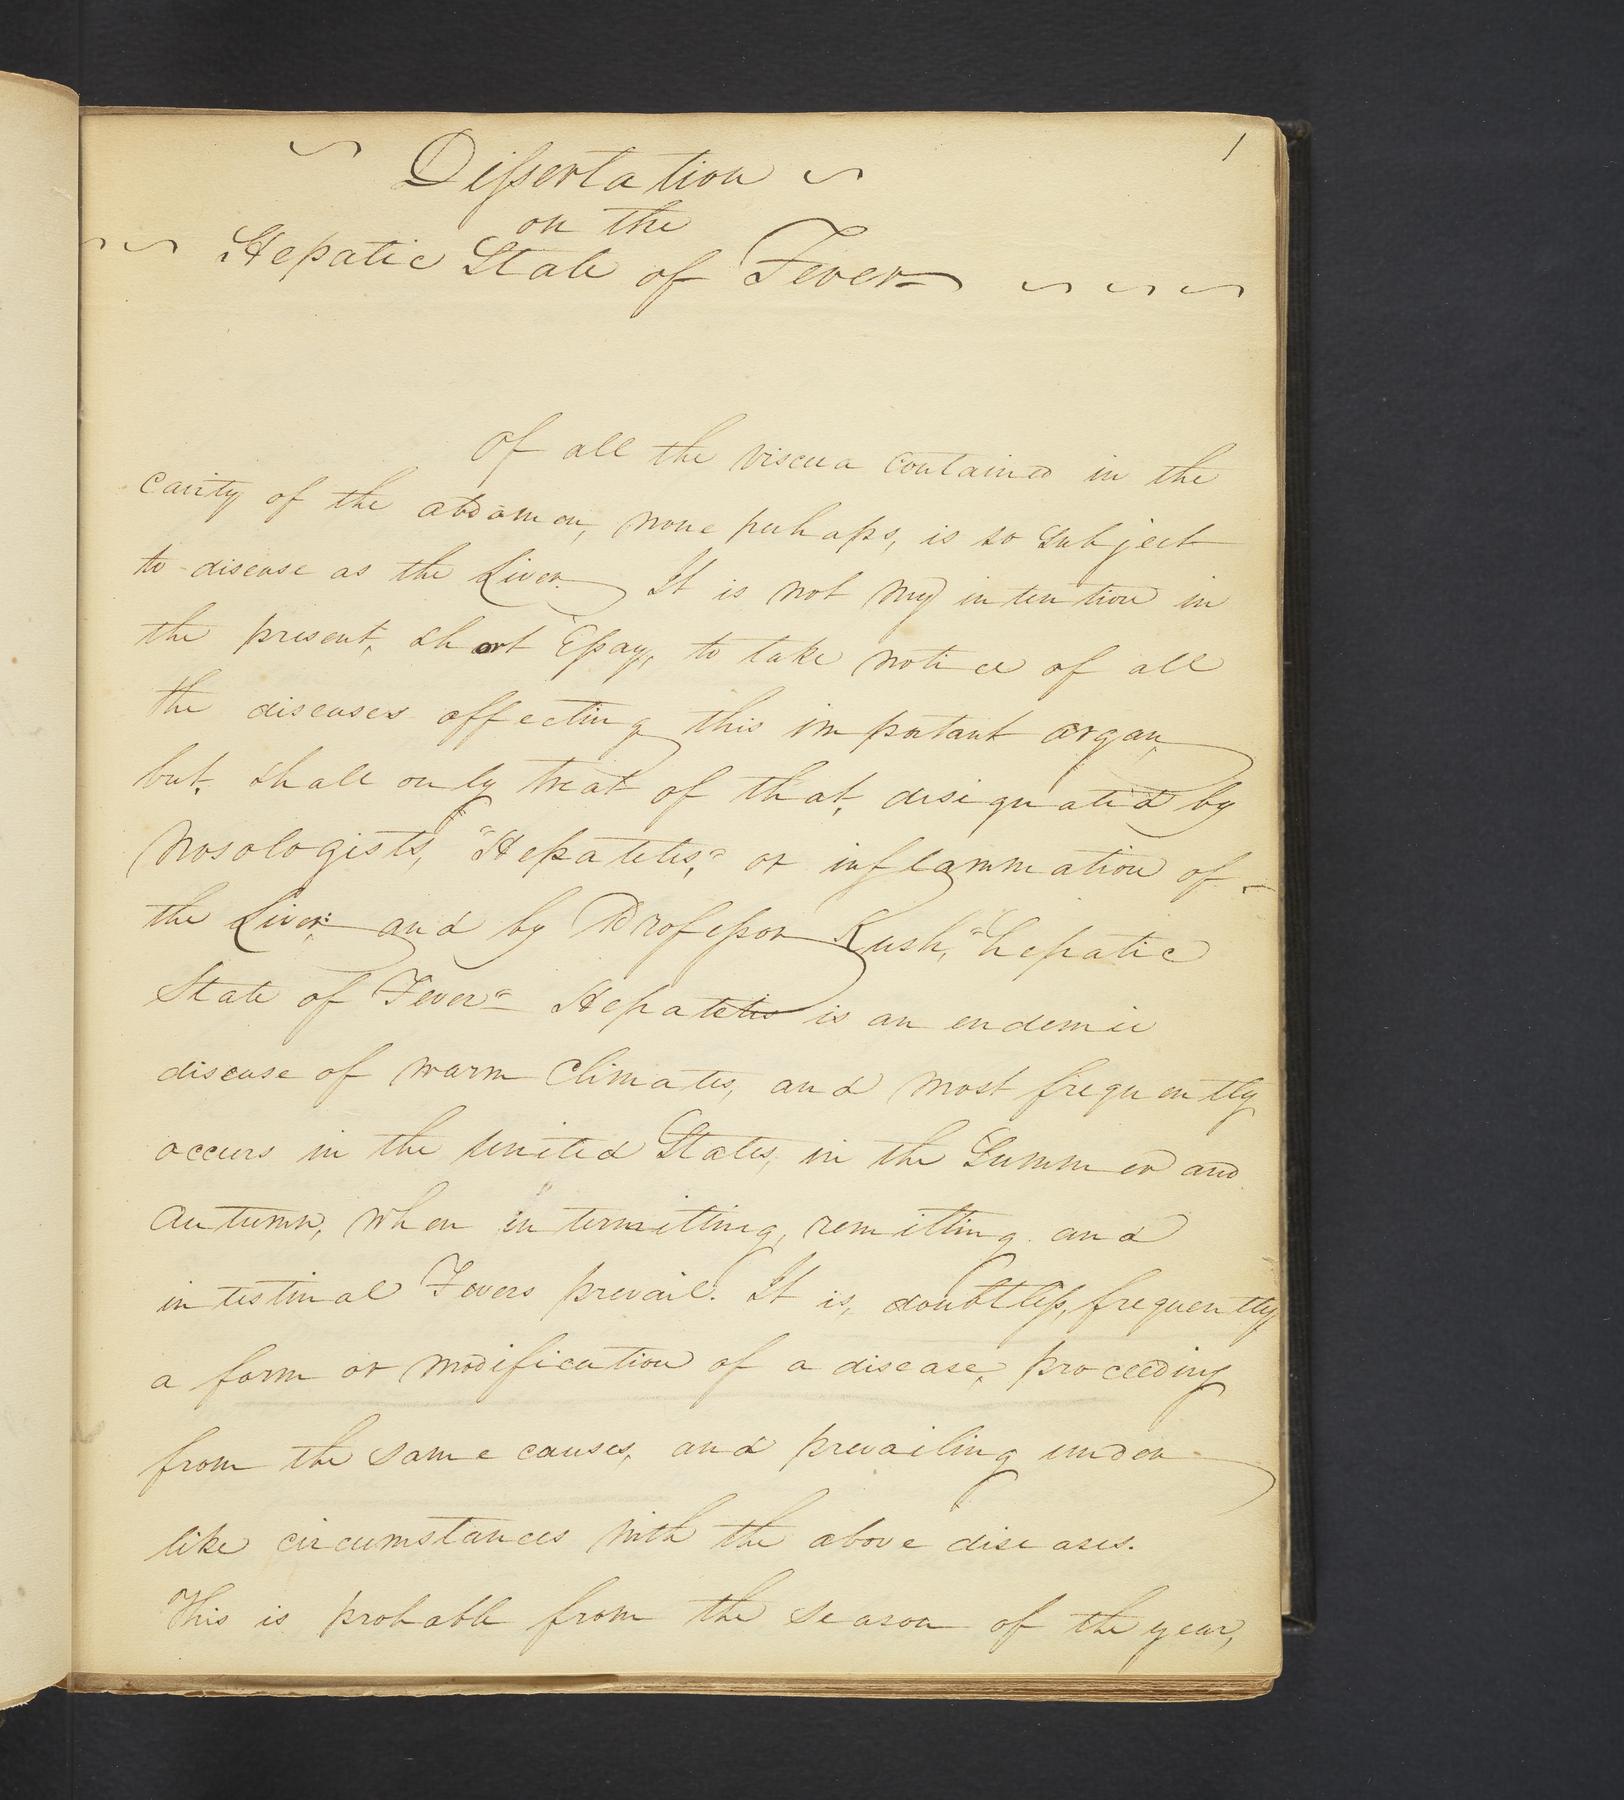 1
Dissertation
on the
Hepatic State of Fever
Of all the viscera contained in the
cavity of the abdomen, none perhaps, is so subject
to disease as the Liver. It is not my intention in
the present, short Essay, to take notice of all
the diseases affecting this important organ,
but, shall only treat of that, designated by
Nosologists, "Hepatetis," or inflammation of
the Liver: and by Professor Rush, "hepatic
State of Fever" Hepatetis is an endemic
disease of warm Climates, and most frequently
occurs in the United States, in the Summer and
Autumn, when intermitting, remitting and
intestinal Fevers prevail. It is, doubtless, frequently
a form or modification of a disease, proceeding
from the same causes, and prevailing under
like circumstances with the above diseases.
This is probable from the season of the year,